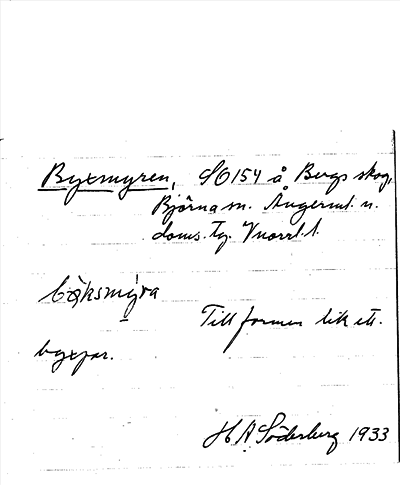 Byxmyren, SO154 å Bergs skog,
Björna sn. Ångerml. n.
doms. Tg. Vnorrl. l.
båksmýra
Till formen lik ett
byxpar.
H A Söderberg 1933